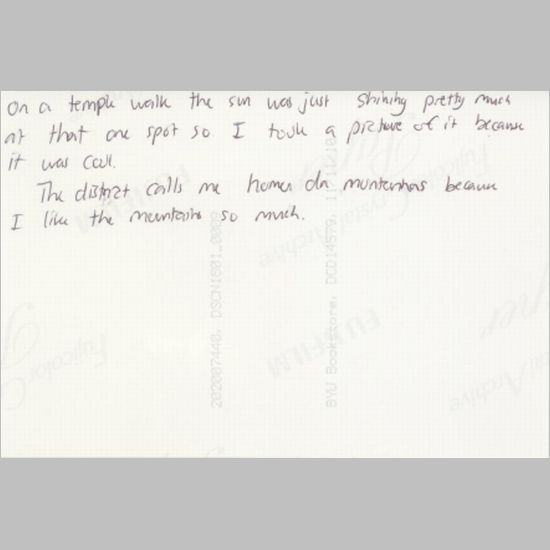 On a temple walk the sun was just shining pretty much
at that one spot so I took a picture of it because
it was cool.
The district calls me homem da montanhas because
I like the mountains so much.
202007440, DSCN1601_0009
BYU Bookstore,
FUJIFILM
FUJIFILM
Fujicolor
Crystal Archive